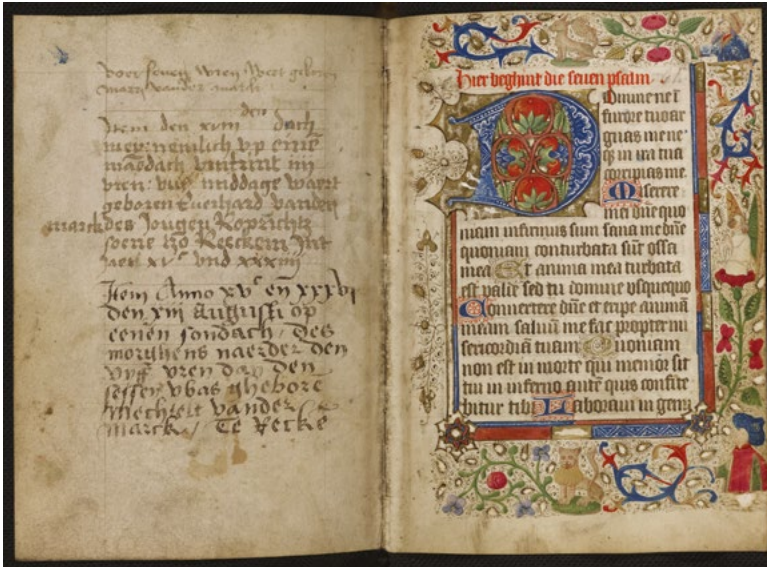 voer seuen vren Wert geboren
marx vander march
den
Item den xviii dach
mey: nemlich vp enē
māēdach vmtrint iiii
vren: vur middage waert
geboren Euerhard vanden
marck des Jougen Roprichtz
soene tzo Reeckem Int
jaer xvᶜ vnd xxxiiii
Item Anno xvᶜ eñ xxxvi
den xiii Augusti op
eenen sondach / des
morghens naerder den
vyff vren dan den
sessen was ghebore
Mechtelt vander
Marck / Te Recke
Hier beghint die seuen psalm
Domine ne ī
furore tuo ar
guas me ne-
qȝ in ira tua
corripias me.
Miserere
mei dn̄e quo
niam infirmus sum sana me dn̄e
quoniam conturbata sūt ossa
mea Et anima mea turbata
est valde sed tu domine vsquequo
Conuertere dn̄e et eripe animā
meam saluū me fac propter mi
sericordiā tuam Quoniam
non est in morte qui memor sit
tui in inferno autē quis confite
bitur tibi Laboraui in gemi